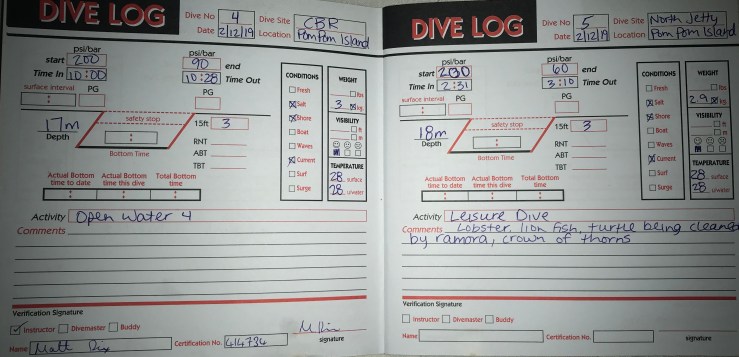 DIVE LOG
Dive No 4 Dive Site CBR
Date 2/12/19 Location Pom Pom Island
psi/bar psi/bar
start 200 90 end
Time In 10:00 10:28 Time Out
surface interval PG PG
:
17m Depth safety stop 15ft 3
:
Bottom Time
RNT
ABT
TBT
CONDITIONS
Fresh
Salt
Shore
Boat
Waves
Current
Surf
Surge
WEIGHT
lbs
3 kg
VISIBILITY
ft
m
TEMPERATURE
28 surface
28 u/water
Actual Bottom time to date Actual Bottom time this dive Total Bottom time
: : :
Activity Open Water 4
Comments
Verification Signature
Instructor Divemaster Buddy
Name Matt Certification No. 414736 signature
DIVE LOG
Dive No 5 Dive Site North Jetty
Date 2/12/19 Location Pom Pom Island
psi/bar psi/bar
start 200 60 end
Time In 2:31 3:10 Time Out
surface interval PG PG
:
18m Depth safety stop 15ft 3
:
Bottom Time
RNT
ABT
TBT
CONDITIONS
Fresh
Salt
Shore
Boat
Waves
Current
Surf
Surge
WEIGHT
lbs
2.9 kg
VISIBILITY
ft
m
TEMPERATURE
28 surface
28 u/water
Actual Bottom time to date Actual Bottom time this dive Total Bottom time
: : :
Activity Leisure Dive
Comments Lobster, lion fish, turtle being cleaned
by ramora, crown of thorns
Verification Signature
Instructor Divemaster Buddy
Name Certification No. signature